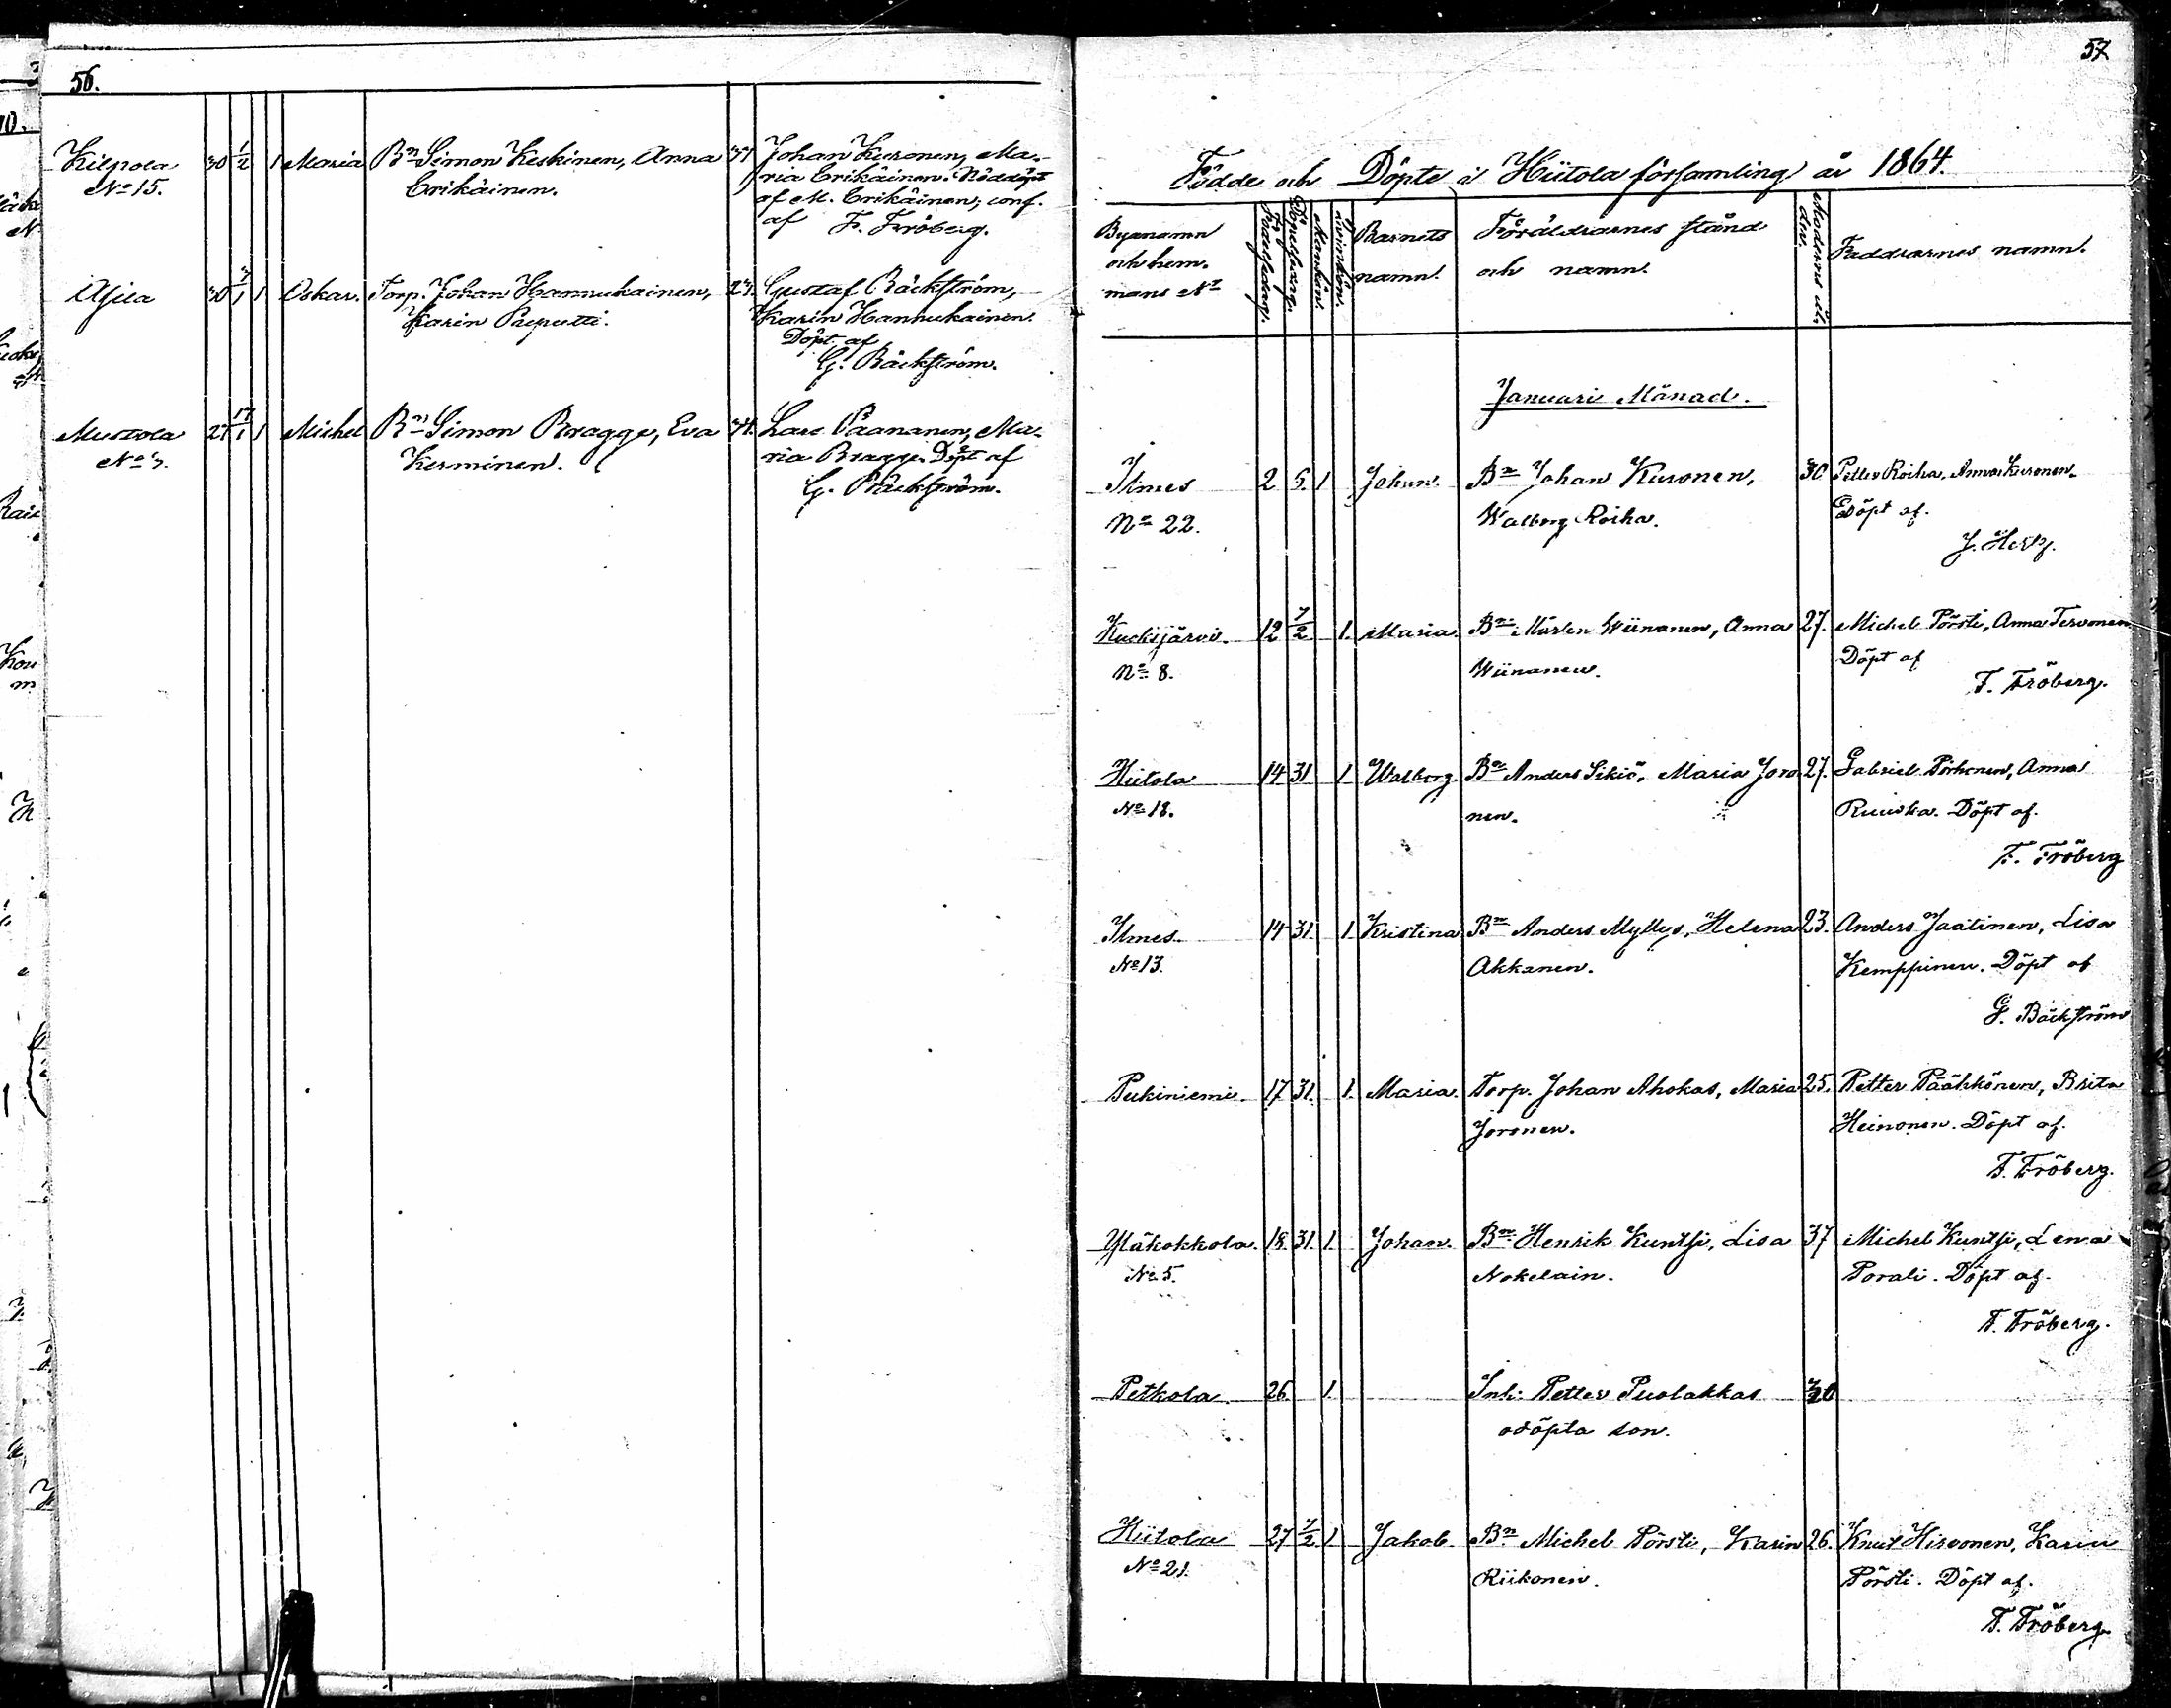 56.
Kilpola 30 1/2 1 Maria Bn Simon Keskinen, Anna 31 Johan Kuronen, Ma-
No 15. Erikäinen. ria Erikäinen. Nöddöpt
af M. Erikäinen, conf.
af F. Fröberg.
30 1 Oskar. Torp. Johan Hannukainen, 23. Gustaf Bäckström,
Karin Preputti. Karin Hannukainen.
Döpt af
G. Bäckström.
Mustola 27 17/1 1 Michel Bn Simon Bragge, Eva 34. Lars Paananen, Ma-
No 3. Kerminen. ria Bragge. Döpt af
G. Bäckström.
57
Födde och Döpte i Hiitola församling år 1864.
Byanamn
och hem-
mans No
Födelsedag.
Döpelsedag.
Mankön.
Qvinnkön.
Barnets
namn.
Föräldrarnes stånd
och namn.
Modrens ål-
der.
Faddrarnes namn.
Januari Månad.
Ilmes 2 6. 1 Johan. Bn Johan Kuronen, 30 Petter Roiha, Anna Kuronen.
No 22. Walborg Roiha. Döpt af.
J. Hertz.
Kuoksjärvi. 12 7/2 1. Maria. Bn Mårten Wiinanen, Anna 27. Michel Pörsti, Anna Tervonen
No 8. Wiinanen. Döpt af
F. Fröberg.
Hiitola 14 31 1 Walborg. Bn Anders Sikiö, Maria Joro 27. Gabriel Pörhonen, Anna
No 18. nen. Ruuska. Döpt af.
F. Fröberg
Ilmes 14 31. 1. Kristina Bn Anders Myllys, Helena 23. Anders Jaatinen, Lisa
No 13. Akkanen. Kemppinen. Döpt af
G. Bäckström
Pukiniemi. 17 31. 1. Maria. Torp. Johan Ahokas, Maria 25. Petter Pääkkönen, Brita
Joronen. Heinonen. Döpt af.
F. Fröberg.
Yläkokkola. 18. 31. 1. Johan. Bn Henrik Kuntsi, Lisa 37 Michel Kuntsi, Lena
No 5. Nokelain. Porali. Döpt af.
F. Fröberg.
Petkola 26. 1. Inh. Petter Puolakkas
odöpta son.
Hiitola 27 7/2 1 Jakob Bn Michel Pörsti, Karin 26. Knut Hirvonen, Karin
No 21. Riikonen. Pörsti. Döpt af.
F. Fröberg.